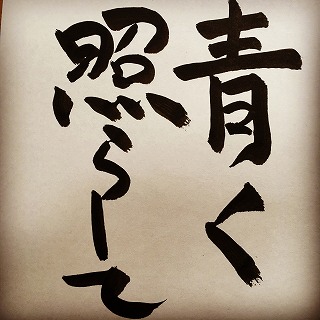 青く
照らして